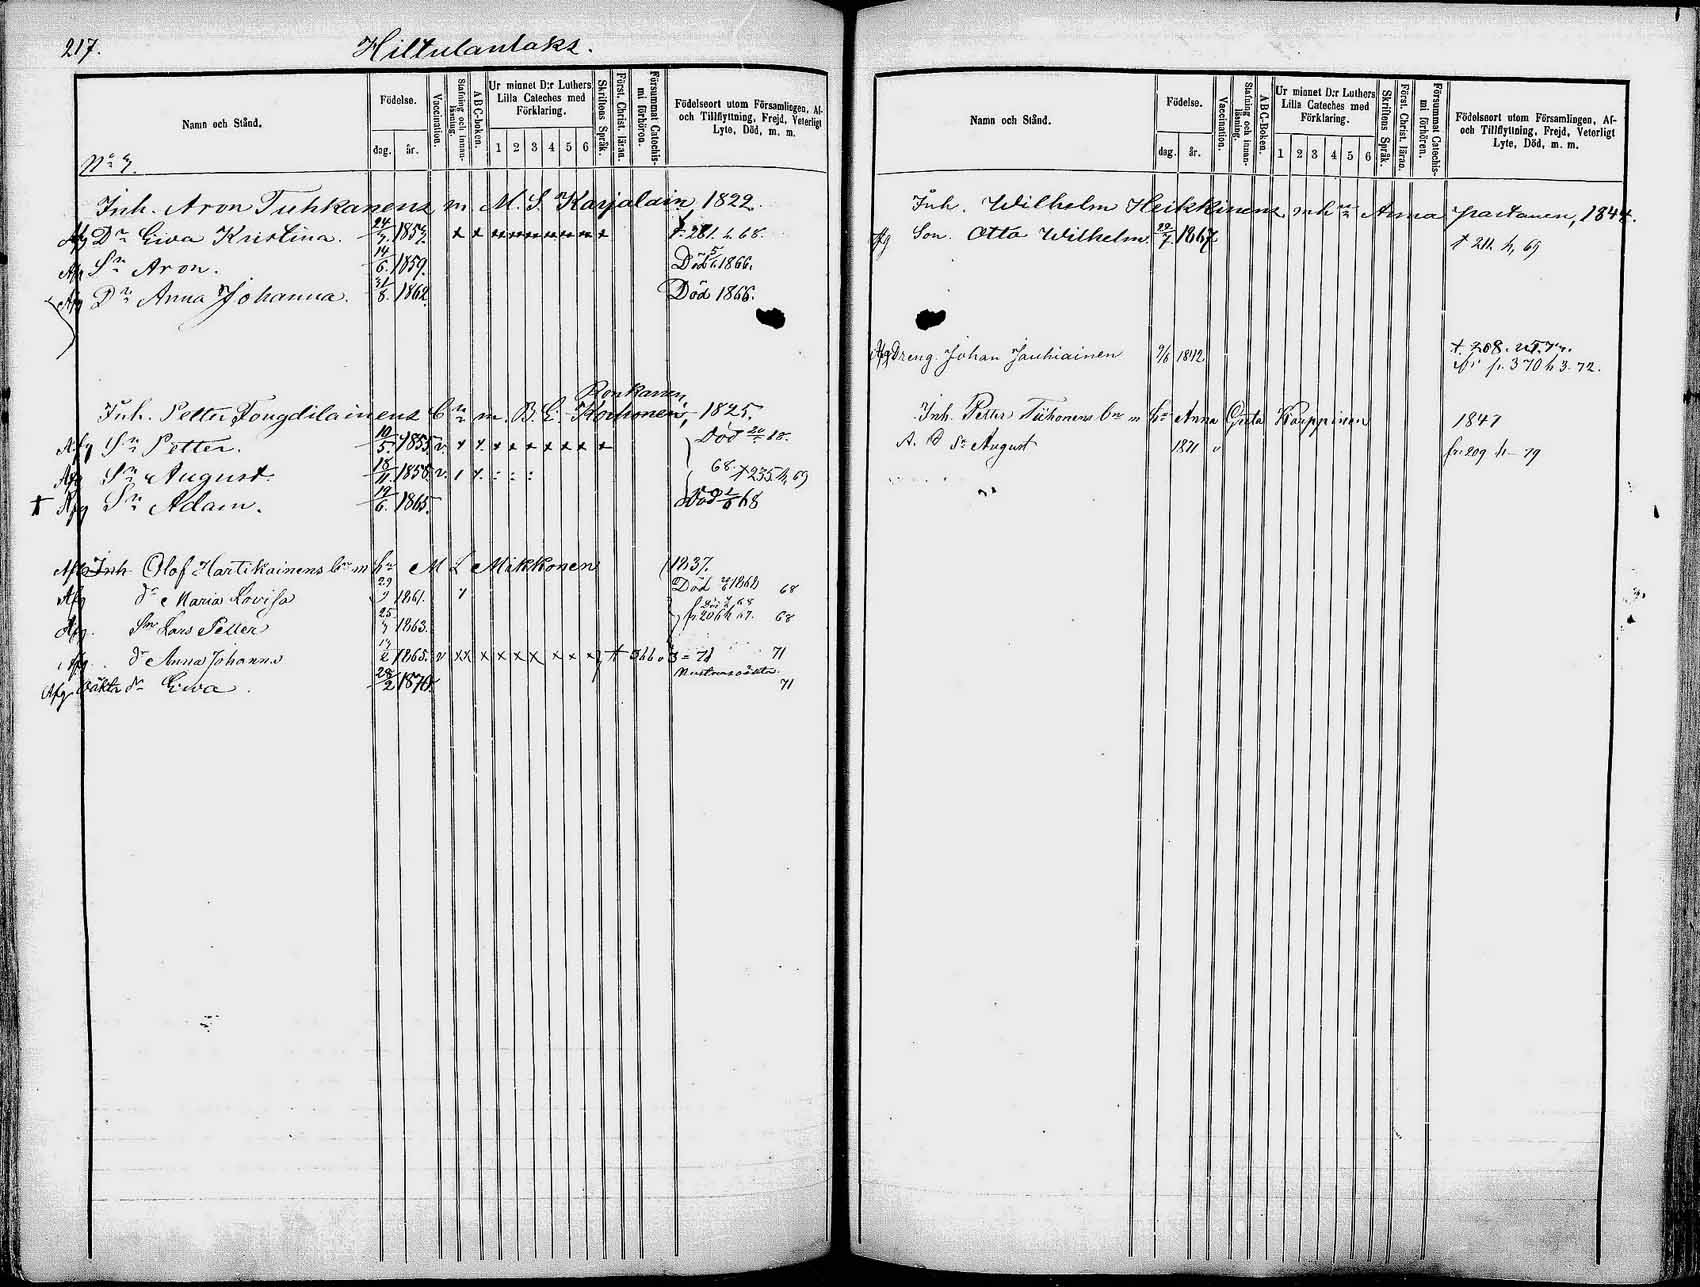 217. Hiltulanlaks.
Namn och Stånd.
Födelse.
dag. år.
Vaccination.
Stafning och innanläsning.
ABC-boken.
Ur minnet D:r Luthers Lilla Cateches med Förklaring.
1 2 3 4 5 6
Skriftens Språk.
Först. Christ. läran.
Försummat Catechismi förhören.
Födelseort utom Församlingen, Af- och Tillflyttning, Frejd, Veterligt Lyte, Död, m. m.
No 3.
Inh. Aron Tuhkanens m. M. S. Karjalain 1822.
Afg Dr Eiva Kristina. 24/3 1857. x x x x x x x x x x 281. h. 68.
Afg Sn Aron. 14/6 1859. Död 1866.
Afg Dr Anna Johanna. 31/8 1862. Död 1866.
Ronkanen,
Inh. Petter Tongdilainens m. B. C. Korhonen, 1825.
Afg Sn Petter. 10/5 1855 v. x x x x x x x x x Död 18.
Afg Sn August. 18/11 1858 v. 68. 235 h. 69
† Afg Sn Adam. 19/6 1865. Död 68
Inh Olof Hartikainens m hu M L Mikkonen 1837.
Afg dr Maria Lovisa 29 1861. Död 1868 68
Afg. Sn Lars Petter 25 1863. fr. 206 h 67. 68
Afg. dr Anna Johanna 1865. v x x x x x x x x x 71
Afg Oäkta dr Eiva. 28/2 1870 71
Namn och Stånd.
Födelse.
dag. år.
Vaccination.
Stafning och innanläsning.
ABC-Boken.
Ur minnet D:r Luthers Lilla Cateches med Förklaring.
1 2 3 4 5 6
Skriftens Språk.
Först. Christ. läran.
Försummat Catechismi förhören.
Födelseort utom Församlingen, Af- och Tillflyttning, Frejd, Veterligt Lyte, Död, m. m.
Inh. Wilhelm Heikkinens m h Anna 1844.
Afg Son. Otto Wilhelm. 1867 211. h. 69
Afg Dreng. Johan Jauhiainen 9/6 1842 208.
370 h 3. 72.
Inh. Petter Tiihonens m hu Anna Greta Karppinen 1847
Sn August 1871 v fr. 209 h 79